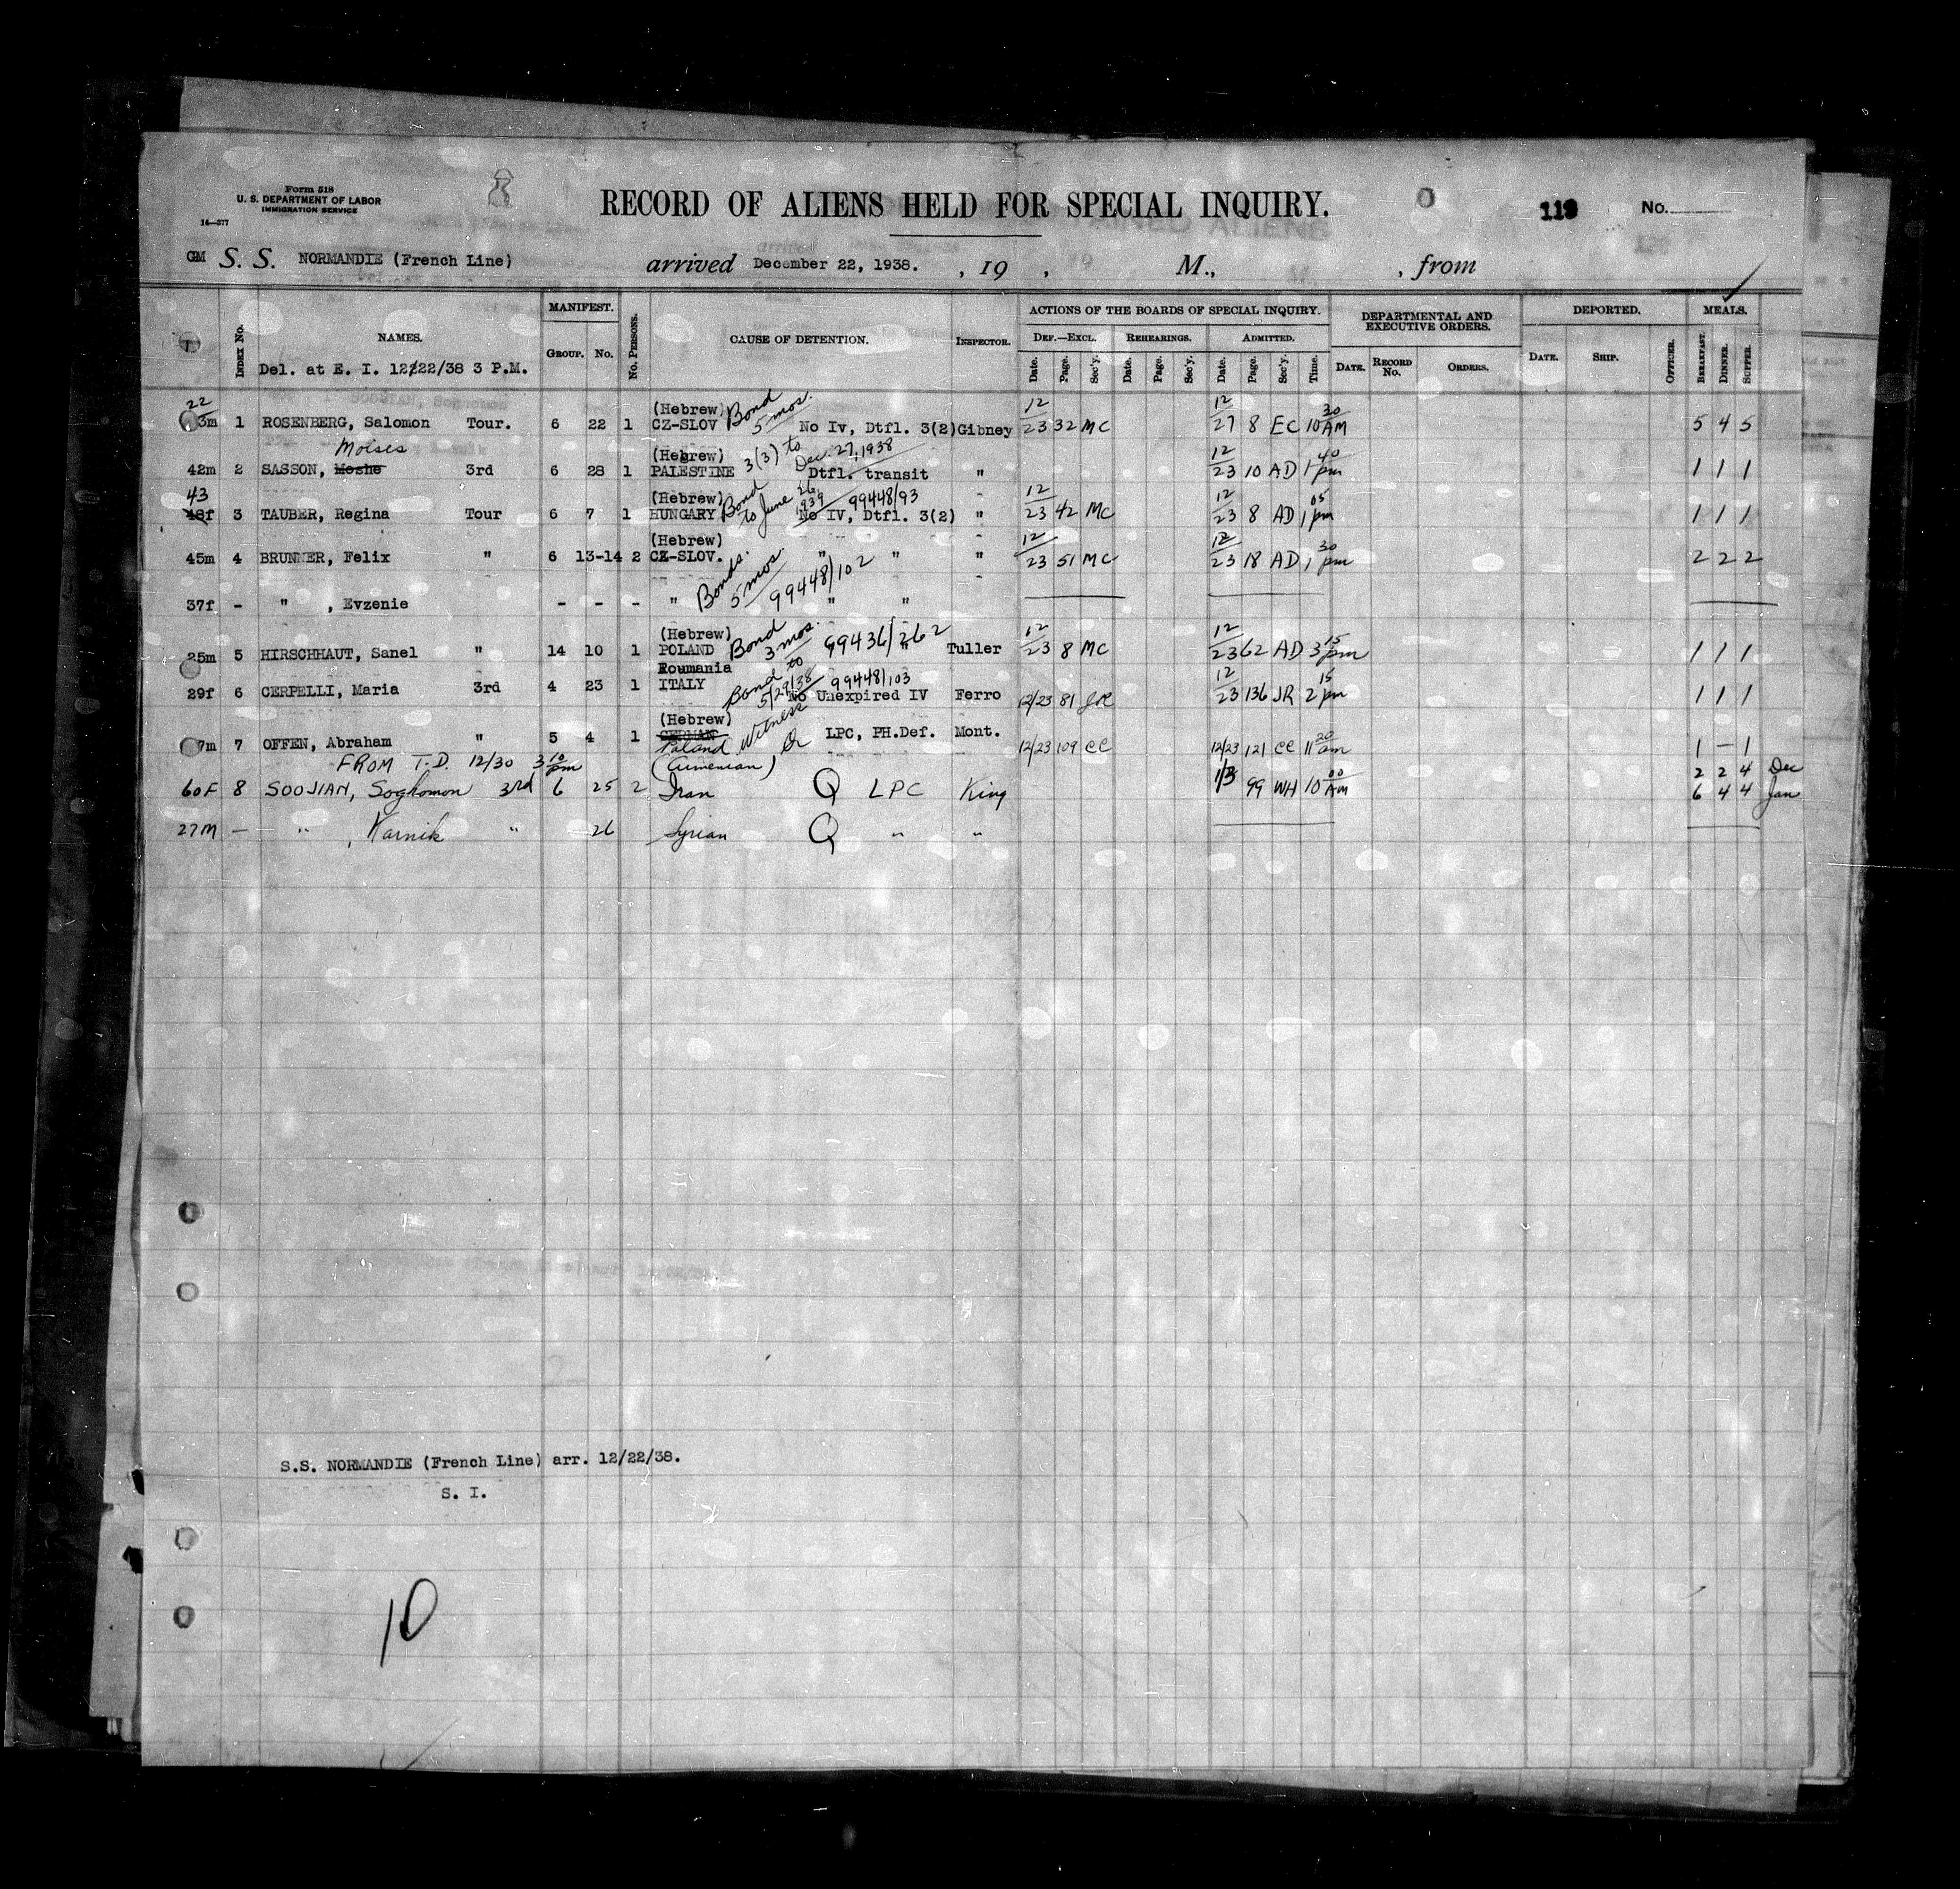 Form 518
U. S. DEPARTMENT OF LABOR
IMMIGRATION SERVICE
14—377
RECORD OF ALIENS HELD FOR SPECIAL INQUIRY.
119 No.
GBM S. S. NORMANDIE (French Line) arrived December 22, 1938. , 19 , M., , from
INDEX No. NAMES. MANIFEST. GROUP. No. No. PERSONS. CAUSE OF DETENTION. INSPECTOR. ACTIONS OF THE BOARDS OF SPECIAL INQUIRY. DEPARTMENTAL AND EXECUTIVE ORDERS. DEPORTED. MEALS.
DEF.—EXCL. REHEARINGS. ADMITTED.
Date. Page. Sec'y. Date. Page. Sec'y. Date. Page. Sec'y. Time. DATE. RECORD No. ORDERS. DATE. SHIP. OFFICER. BREAKFAST. DINNER. SUPPER.
Del. at E. I. 12/22/38 3 P.M.
22 (Hebrew) Bond 5 mos. 12 12 30
3m 1 ROSENBERG, Salomon Tour. 6 22 1 CZ-SLOV No Iv, Dtfl. 3(2) Gibney 23 32 MC 27 8 EC 10 AM 5 4 5
Moises (Hebrew) 3(3) to Dec. 27, 1938 12 40
42m 2 SASSON, Moshe 3rd 6 28 1 PALESTINE Dtfl. transit " 23 10 AD 1 pm 1 1 1
43 (Hebrew) Bond to June 26 1939 99448/93 12 12 05
48f 3 TAUBER, Regina Tour 6 7 1 HUNGARY No IV, Dtfl. 3(2) " 23 42 MC 23 8 AD 1 pm 1 1 1
(Hebrew) 12 12 30
45m 4 BRUNNER, Felix " 6 13-14 2 CZ-SLOV. " " " 23 51 MC 23 18 AD 1 pm 2 2 2
Bonds. 5 mos 99448/102
37f - " , Evzenie - - - " " "
(Hebrew) Bond 3 mos. 99436/262 12 12 15
25m 5 HIRSCHHAUT, Sanel " 14 10 1 POLAND " Tuller 23 8 MC 23 62 AD 3 pm 1 1 1
Roumania Bond to 5/29/38 99448/103 12 15
29f 6 CERPELLI, Maria 3rd 4 23 1 ITALY No Unexpired IV Ferro 12/23 81 JR 23 136 JR 2 pm 1 1 1
(Hebrew) Witness
7m 7 OFFEN, Abraham " 5 4 1 GERMAN Poland LPC, PH.Def. Mont. 12/23 109 CC 12/23 121 CC 11 20 am 1 - 1
FROM T.D. 12/30 3 10 pm (Armenian) 2 2 4 Dec
60F 8 SOOJIAN, Soghomon 3rd 6 25 2 Iran Q LPC King 1/3 99 WH 10 00 AM 6 4 4 Jan
27M — " , Karnik " 26 Syrian Q " "
S.S. NORMANDIE (French Line) arr. 12/22/38.
S. I.
10